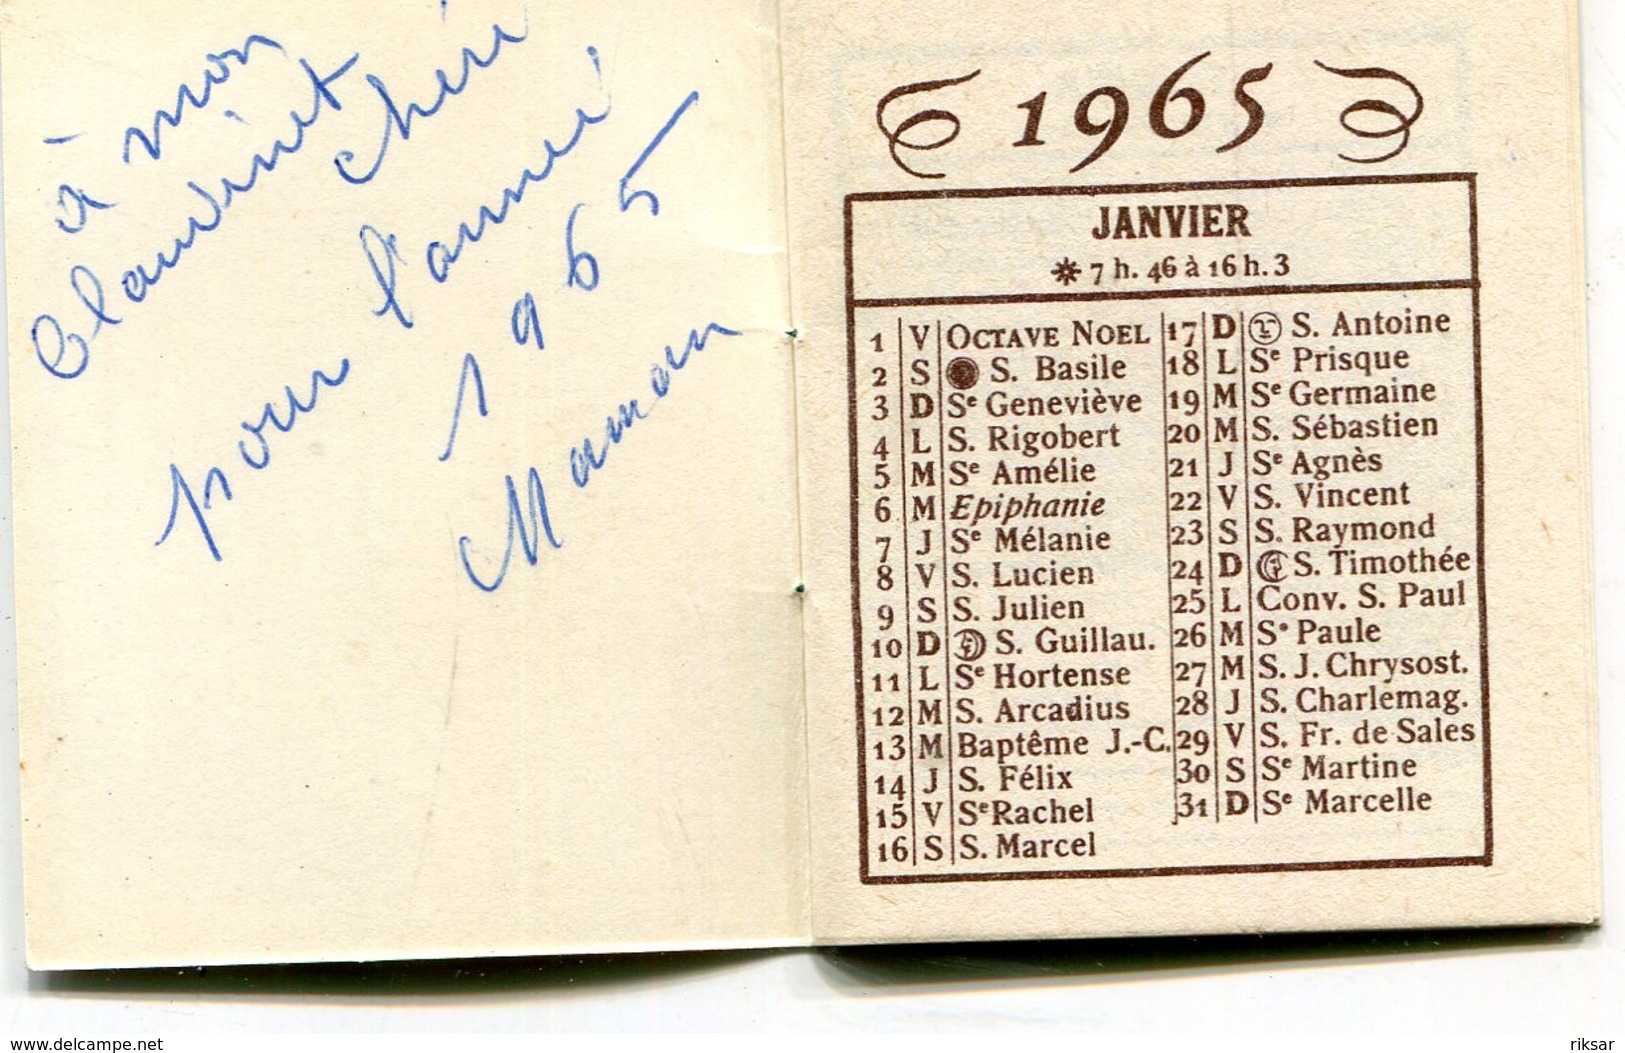 à mon
Clauvinet
chéri
pour l'anneé
1965
Maman
1965
JANVIER
☼ 7 h. 46 à 16 h. 3
1 V OCTAVE NOEL
2 S S. Basile
3 D Se Geneviève
4 L S. Rigobert
5 M Se Amélie
6 M Epiphanie
7 J Se Mélanie
8 V S. Lucien
9 S S. Julien
10 D S. Guillau.
11 L Se Hortense
12 M S. Arcadius
13 M Baptême J.-C.
14 J S. Félix
15 V Se Rachel
16 S S. Marcel
17 D S. Antoine
18 L Se Prisque
19 M Se Germaine
20 M S. Sébastien
21 J Se Agnès
22 V S. Vincent
23 S S. Raymond
24 D S. Timothée
25 L Conv. S. Paul
26 M Se Paule
27 M S. J. Chrysost.
28 J S. Charlemag.
29 V S. Fr. de Sales
30 S Se Martine
31 D Se Marcelle
www.delcampe.net
riksar